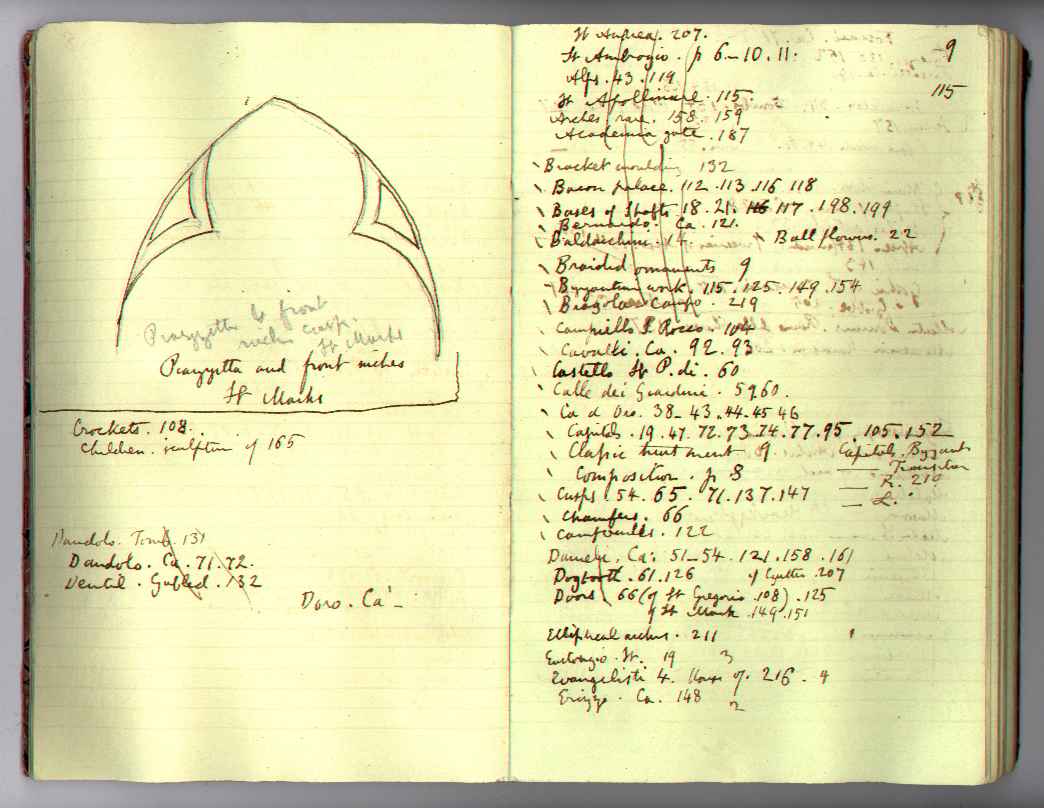 Piazzetta & front
niches cusp.
St Marks
Piazzetta and front niches
St Marks
Crockets. 108.
Children. sculpture of 165
Dandolo. Tomb. 131
Dandolo. Ca. 71.72.
Dentil. Gabled. 132
Doro. Ca' -
9
St Andrea. 207.
St Ambrogio. p 6-10.11.
Alps. 43.119
115
St Apollinare. 115
Arches rare. 158. 159
Academia gate. 187
Bracket moulding 132
Bacon palace. 112.113.116 118
Bases of Shafts 18.21. 116 117.198.199
Bernardo. Ca. 121.
Baldacchini. 14. Ball flowers. 22
Braided ornaments 9
Byzantine work. 115.125.149.154
Campo. 219
Campiello S. Rocco. 104
Cavalli. Ca. 92.93
Castello St P. di. 60
Calle dei 5960.
Ca d Oro. 38-43.44.45 46
Capitals. 19.47.72.73.74.77.95.105.152
Classic treatment 9. Capitals. Byzant
Transition
Composition. p 8
R. 210
Cusps. 54. 65. 71.137.147
L. "
Chamfers. 66
122
Danieli. Ca'. 51-54. 121.158.161
Dogtooth. 61.126 of 207
Doors. 66 (of St Gregorio 108). 125
of St Mark 149.151
Elliptical arches. 211
Eustorgio. St. 19 3
Evangelisti 4. House of. 216. 4
Erizzo. Ca. 148 2